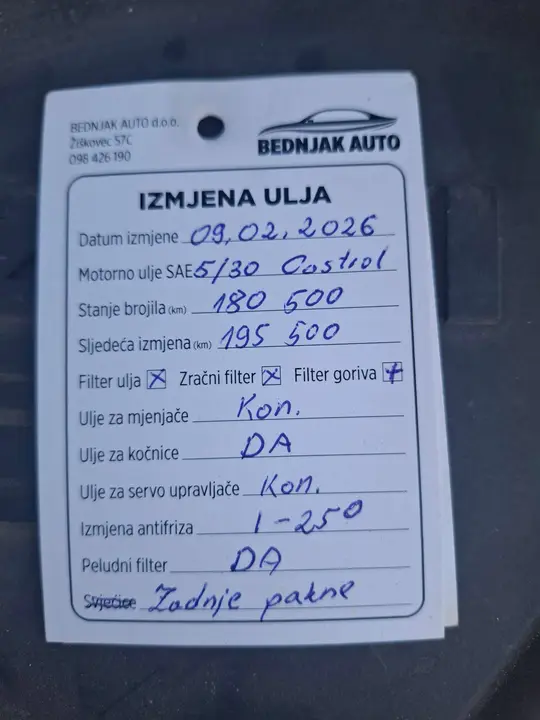 BEDNJAK AUTO d.o.o.
Žiškovec 57C
098 426 190
BEDNJAK AUTO
IZMJENA ULJA
Datum izmjene 09,02,2026
Motorno ulje SAE 5/30 Castrol
Stanje brojila (km) 180 500
Sljedeća izmjena (km) 195 500
Filter ulja X Zračni filter X Filter goriva +
Ulje za mjenjače Kon.
Ulje za kočnice DA
Ulje za servo upravljače Kon.
Izmjena antifriza 1-25°
Peludni filter DA
Svjećice Zadnje pakne